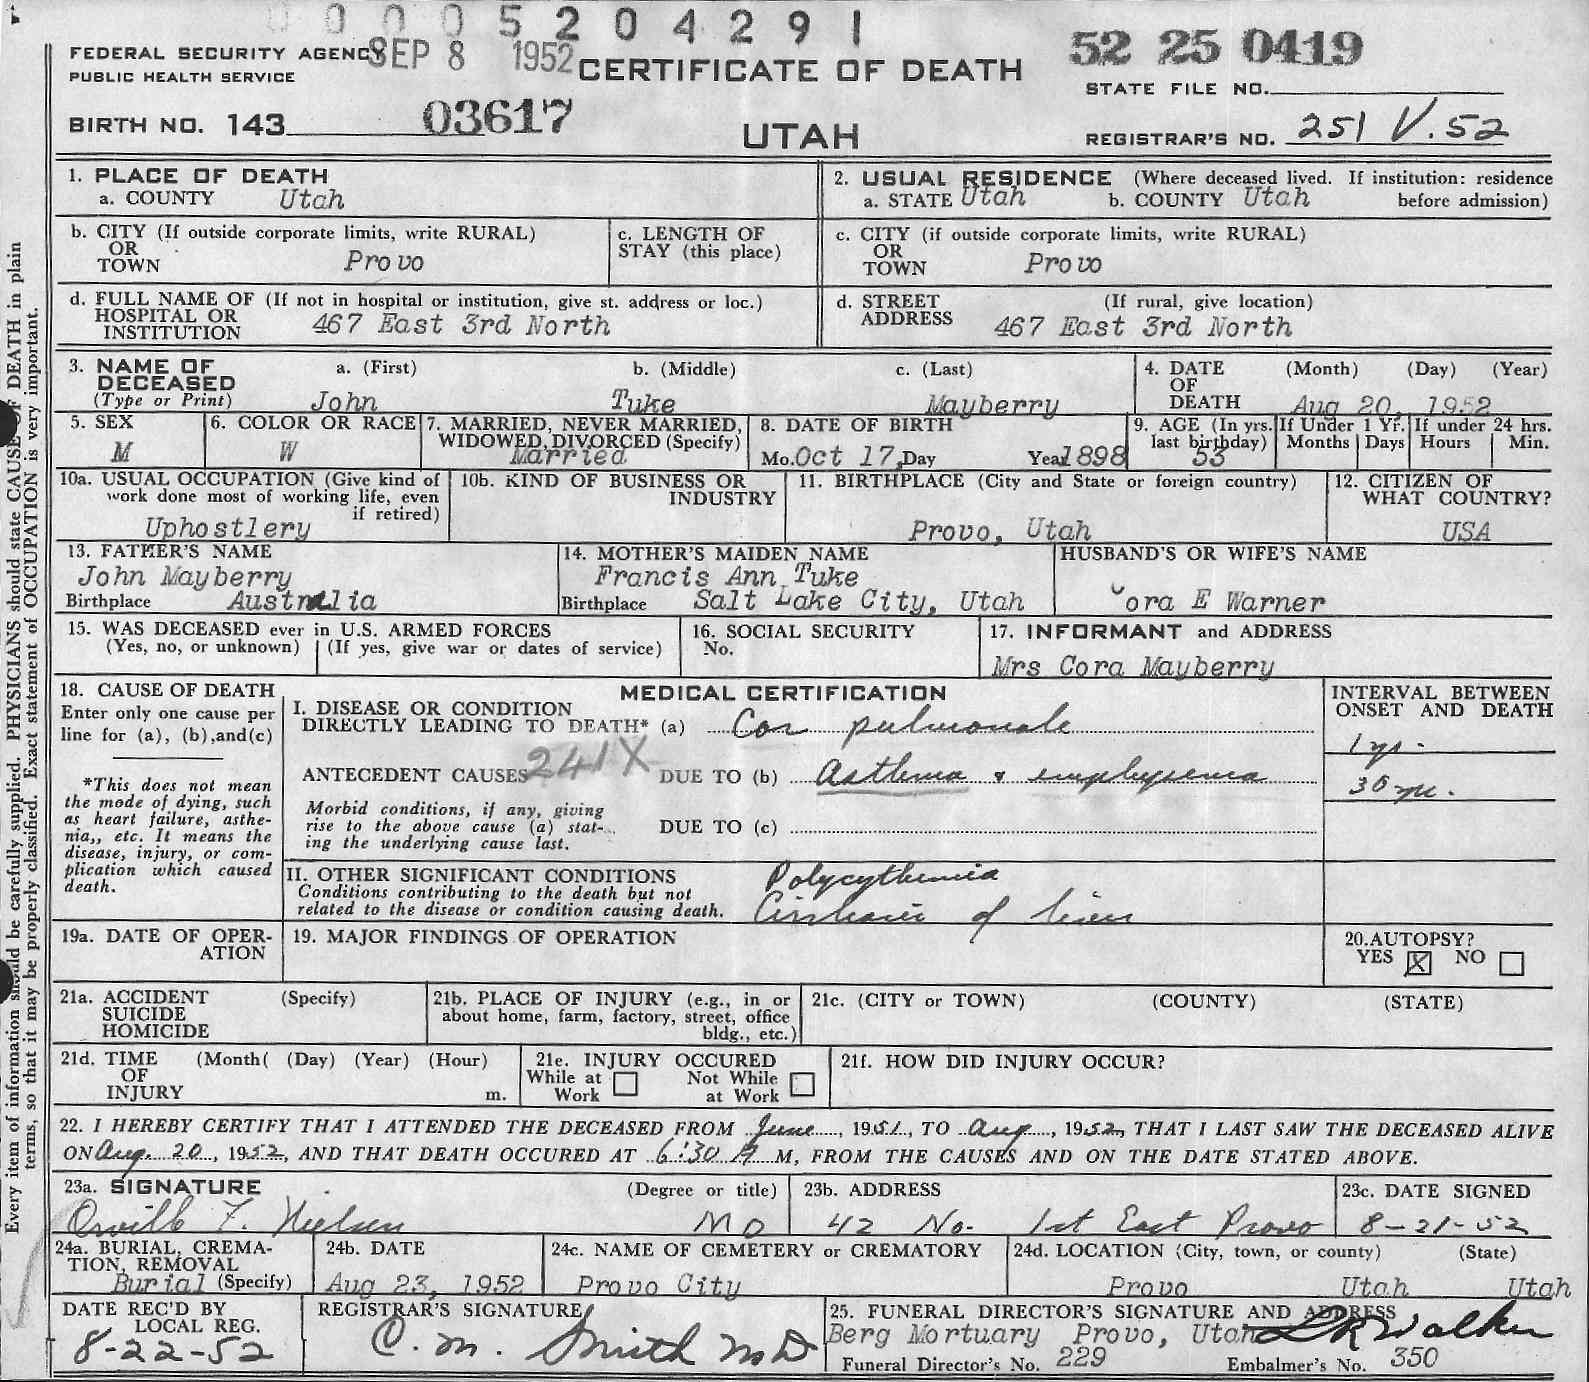 0 0 0 0 5 2 0 4 2 9 1
FEDERAL SECURITY AGENCY SEP 8 1952 CERTIFICATE OF DEATH 52 25 0419
PUBLIC HEALTH SERVICE STATE FILE NO.
BIRTH NO. 143 03617 UTAH REGISTRAR'S NO. 251 V. 52
1. PLACE OF DEATH
a. COUNTY Utah
2. USUAL RESIDENCE (Where deceased lived. If institution: residence
a. STATE Utah b. COUNTY Utah before admission)
b. CITY (If outside corporate limits, write RURAL)
OR
TOWN Provo
c. LENGTH OF
STAY (this place)
c. CITY (if outside corporate limits, write RURAL)
OR
TOWN Provo
d. FULL NAME OF (If not in hospital or institution, give st. address or loc.)
HOSPITAL OR
INSTITUTION 467 East 3rd North
d. STREET (If rural, give location)
ADDRESS 467 East 3rd North
3. NAME OF a. (First) b. (Middle) c. (Last)
DECEASED
(Type or Print) John Tuke Mayberry
4. DATE (Month) (Day) (Year)
OF
DEATH Aug 20, 1952
5. SEX
M
6. COLOR OR RACE
W
7. MARRIED, NEVER MARRIED,
WIDOWED, DIVORCED (Specify)
Married
8. DATE OF BIRTH
Mo. Oct 17, Day Year 1898
9. AGE (In yrs.
last birthday)
53
If Under 1 Yr.
Months Days
If under 24 hrs.
Hours Min.
10a. USUAL OCCUPATION (Give kind of
work done most of working life, even
if retired)
Uphostlery
10b. KIND OF BUSINESS OR
INDUSTRY
11. BIRTHPLACE (City and State or foreign country)
Provo, Utah
12. CITIZEN OF
WHAT COUNTRY?
USA
13. FATHER'S NAME
John Mayberry
Birthplace Australia
14. MOTHER'S MAIDEN NAME
Francis Ann Tuke
Birthplace Salt Lake City, Utah
HUSBAND'S OR WIFE'S NAME
Cora E Warner
15. WAS DECEASED ever in U.S. ARMED FORCES
(Yes, no, or unknown) (If yes, give war or dates of service)
16. SOCIAL SECURITY
No.
17. INFORMANT and ADDRESS
Mrs Cora Mayberry
18. CAUSE OF DEATH
Enter only one cause per
line for (a), (b),and(c)
*This does not mean
the mode of dying, such
as heart failure, asthe-
nia,, etc. It means the
disease, injury, or com-
plication which caused
death.
MEDICAL CERTIFICATION
I. DISEASE OR CONDITION
DIRECTLY LEADING TO DEATH* (a) Cor pulmonale
ANTECEDENT CAUSES 241X DUE TO (b) Asthma & emphysema
Morbid conditions, if any, giving
rise to the above cause (a) stat-
ing the underlying cause last.
DUE TO (c)
INTERVAL BETWEEN
ONSET AND DEATH
1 yr.
30 yr.
II. OTHER SIGNIFICANT CONDITIONS
Conditions contributing to the death but not
related to the disease or condition causing death.
Polycythemia
Cirrhosis of liver
19a. DATE OF OPER-
ATION
19. MAJOR FINDINGS OF OPERATION
20.AUTOPSY?
YES X NO
21a. ACCIDENT (Specify)
SUICIDE
HOMICIDE
21b. PLACE OF INJURY (e.g., in or
about home, farm, factory, street, office
bldg., etc.)
21c. (CITY or TOWN) (COUNTY) (STATE)
21d. TIME (Month( (Day) (Year) (Hour)
OF
INJURY m.
21e. INJURY OCCURED
While at Not While
Work at Work
21f. HOW DID INJURY OCCUR?
22. I HEREBY CERTIFY THAT I ATTENDED THE DECEASED FROM June, 1951, TO Aug, 1952, THAT I LAST SAW THE DECEASED ALIVE
ON Aug. 20, 1952, AND THAT DEATH OCCURED AT 6:30 A M, FROM THE CAUSES AND ON THE DATE STATED ABOVE.
23a. SIGNATURE (Degree or title)
Orville F. Nielsen MD
23b. ADDRESS
42 No. 1st East Provo
23c. DATE SIGNED
8-21-52
24a. BURIAL, CREMA-
TION, REMOVAL
Burial (Specify)
24b. DATE
Aug 23, 1952
24c. NAME OF CEMETERY or CREMATORY
Provo City
24d. LOCATION (City, town, or county) (State)
Provo Utah Utah
DATE REC'D BY
LOCAL REG.
8-22-52
REGISTRAR'S SIGNATURE
C. M. Smith MD
25. FUNERAL DIRECTOR'S SIGNATURE AND ADDRESS
Berg Mortuary Provo, Utah Walker
Funeral Director's No. 229 Embalmer's No. 350
Every item of information should be carefully supplied. PHYSICIANS should state CAUSE OF DEATH in plain
terms, so that it may be properly classified. Exact statement of OCCUPATION is very important.